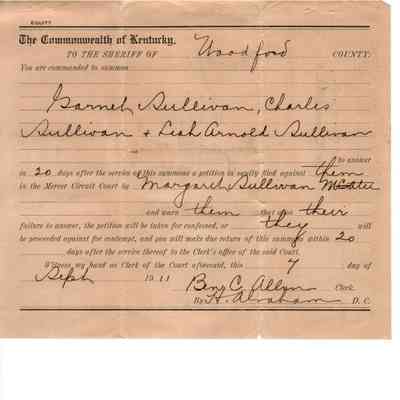 EQUITY
The Commonwealth of Kentucky,
TO THE SHERIFF OF Woodford COUNTY:
You are commanded to summon
Garnet Sullivan, Charles
Sullivan & Leah Arnold Sullivan
to answer
in 20 days after the service of this summons a petition in equity filed against them
in the Mercer Circuit Court by Margaret Sullivan
and warn them that upon their
failure to answer, the petition will be taken for confessed, or they will
be proceeded against for contempt, and you will make due return of this summons within 20
days after the service thereof to the Clerk's office of the said Court.
Witness my hand as Clerk of the Court aforesaid, this 7 day of
Sept 1911 Ben C. Allen Clerk
By H. Abraham D. C.